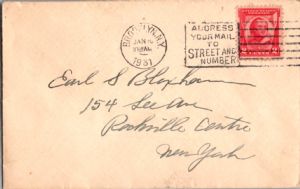 BROOKLYN, N.Y.
JAN
1931
ADDRESS
YOUR MAIL
TO
STREET AND
NUMBER
Earl S Bloxham
154 Lee Ave
Rockville Centre
New York